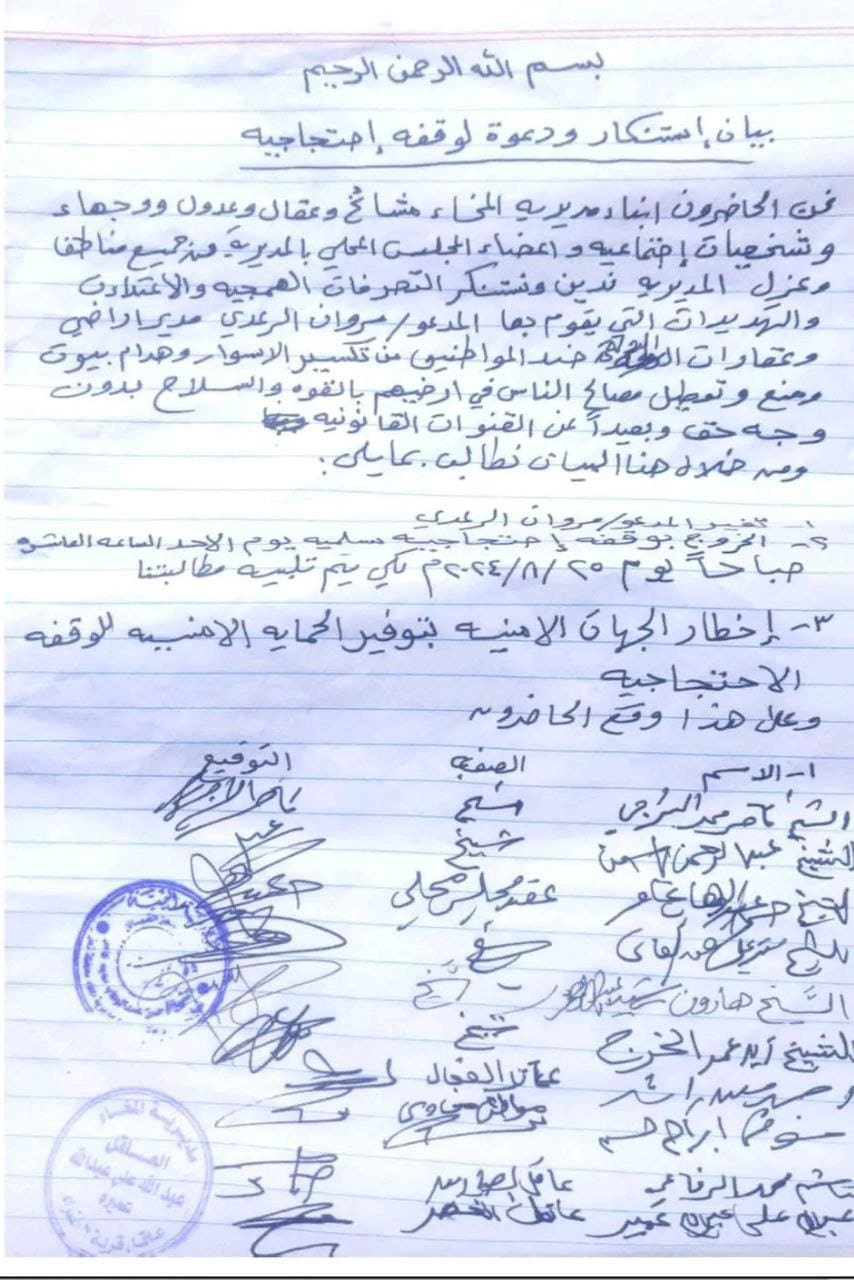 بسم الله الرحمن الرحيم
بيان إستنكار ودعوة لوقفه إحتجاجيه
نحن الحاضرون ابناء مديريه المخاء مشائخ وعقال وعدول ووجهاء
وشخصيات إجتماعيه واعضاء المجلس المحلي بالمديرية من جميع مناطق
وعزل المديريه ندين ونستنكر التصرفات الهمجيه والاعتداءت
والتهديدات التي يقوم بها المدعو/ مروان الرعدي مديراراضي
وعقارات ضد المواطنين من تكسير الاسوار وهدام بيوت
ومنع وتعطيل مصالح الناس في ارضيهم بالقوه والسلاح بدون
وجه حق وبعيداً عن القنوات القانونيه
ومن خلال هذا البيان نطالب بمايلي :
١- تغيير المدعو/ مروان الرعدي
٢- الخروج بوقفه إحتجاجييه سلميه يوم الاحد الساعه العاشره
صباحاً يوم ٢٠٢٤/٨/٢٥م لكي يتم تلبيه مطالبتنا
٣- إخطار الجهات الامنيه بتوفير الحمايه الامنييه للوقفه
الاحتجاجيه
وعلى هذا وقع الحاضرون
١- الاسم الصفه التوقيع
الشيخ ناصر محمد شيخ
الشيخ عبدالرحمن شيخ
الشيخ عامر محلي
الشيخ هارون شيخ
الشيخ زيد عمر الخرج شيخ
عاقل
محمد الرفاعي عاقل
عبدالله علي عبدالله عميره عاقل
مديرية المخاء
العاقل
عبدالله علي عبدالله
عميره
عاقل قرية